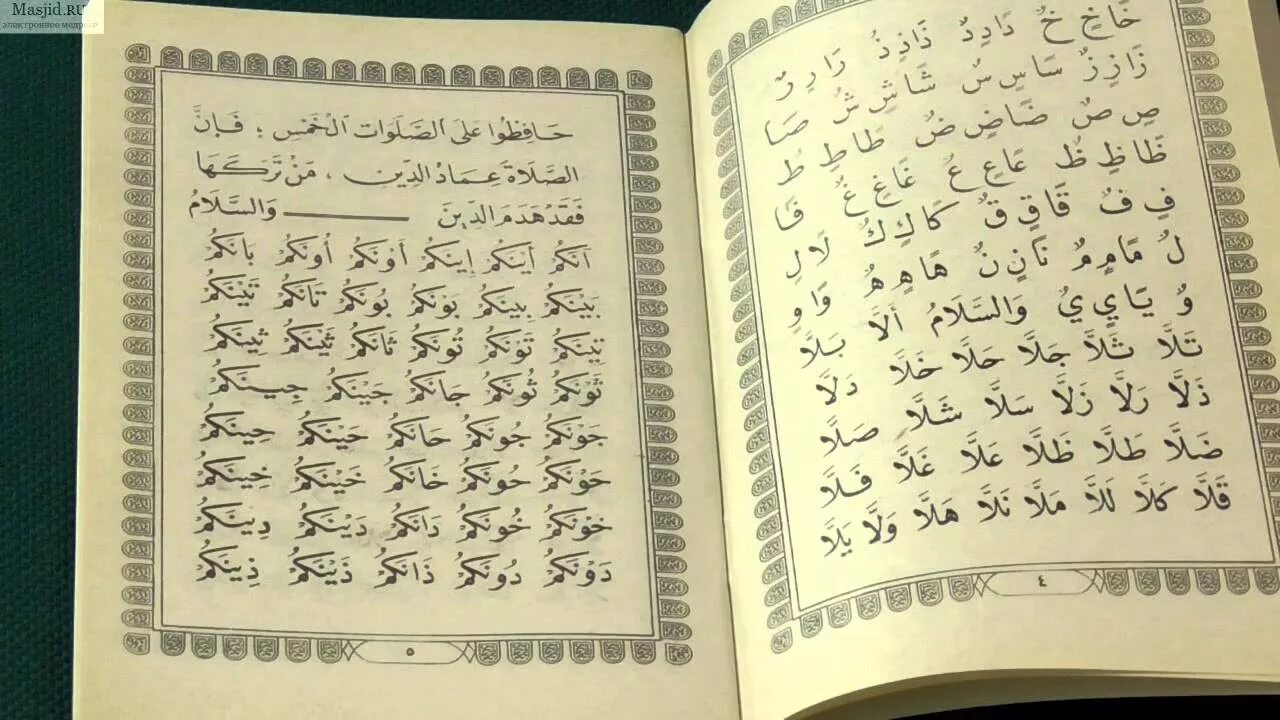 Masjid.RU
электронное медресе
خَاخِ خُ دَادِدُ ذَاذِذُ رَارِرُ
زَازِزُ سَاسِسُ شَاشِشُ صَا
صِصُ ضَاضِضُ طَاطِطُ
ظَاظِظُ عَاعِعُ غَاغِغُ فَا
فِفُ قَاقِقُ كَاكِكُ لَالِ
لُ مَامِمُ نَانِنُ هَاهِهُ وَاوِ
وُ يَايِيُ وَالسَّلَامُ أَلَّا بَلَّا
تَلَّا ثَلَّا جَلَّا حَلَّا خَلَّا دَلَّا
ذَلَّا رَلَّا زَلَّا سَلَّا شَلَّا صَلَّا
ضَلَّا طَلَّا ظَلَّا عَلَّا غَلَّا فَلَّا
قَلَّا كَلَّا لَلَّا مَلَّا نَلَّا هَلَّا وَلَّا يَلَّا
٤
حَافِظُوا عَلَى الصَّلَوَاتِ الْخَمْسِ ؛ فَإِنَّ
الصَّلَاةَ عِمَادُ الدِّينِ ، مَنْ تَرَكَهَا
فَقَدْ هَدَمَ الدِّينَ ــــــ وَالسَّلَامُ
أَنَكُمْ أَيْنَكُمْ إِينَكُمْ أَوْنَكُمْ أُونَكُمْ بَانَكُمْ
بَيْنَكُمْ بِينَكُمْ بَوْنَكُمْ بُونَكُمْ تَانَكُمْ تَيْنَكُمْ
تِينَكُمْ تَوْنَكُمْ تُونَكُمْ ثَانَكُمْ ثَيْنَكُمْ ثِينَكُمْ
ثَوْنَكُمْ ثُونَكُمْ جَانَكُمْ جَيْنَكُمْ جِينَكُمْ
جَوْنَكُمْ جُونَكُمْ حَانَكُمْ حَيْنَكُمْ حِينَكُمْ
حَوْنَكُمْ حُونَكُمْ خَانَكُمْ خَيْنَكُمْ خِينَكُمْ
خَوْنَكُمْ خُونَكُمْ دَانَكُمْ دَيْنَكُمْ دِينَكُمْ
دَوْنَكُمْ دُونَكُمْ ذَانَكُمْ ذَيْنَكُمْ ذِينَكُمْ
٥